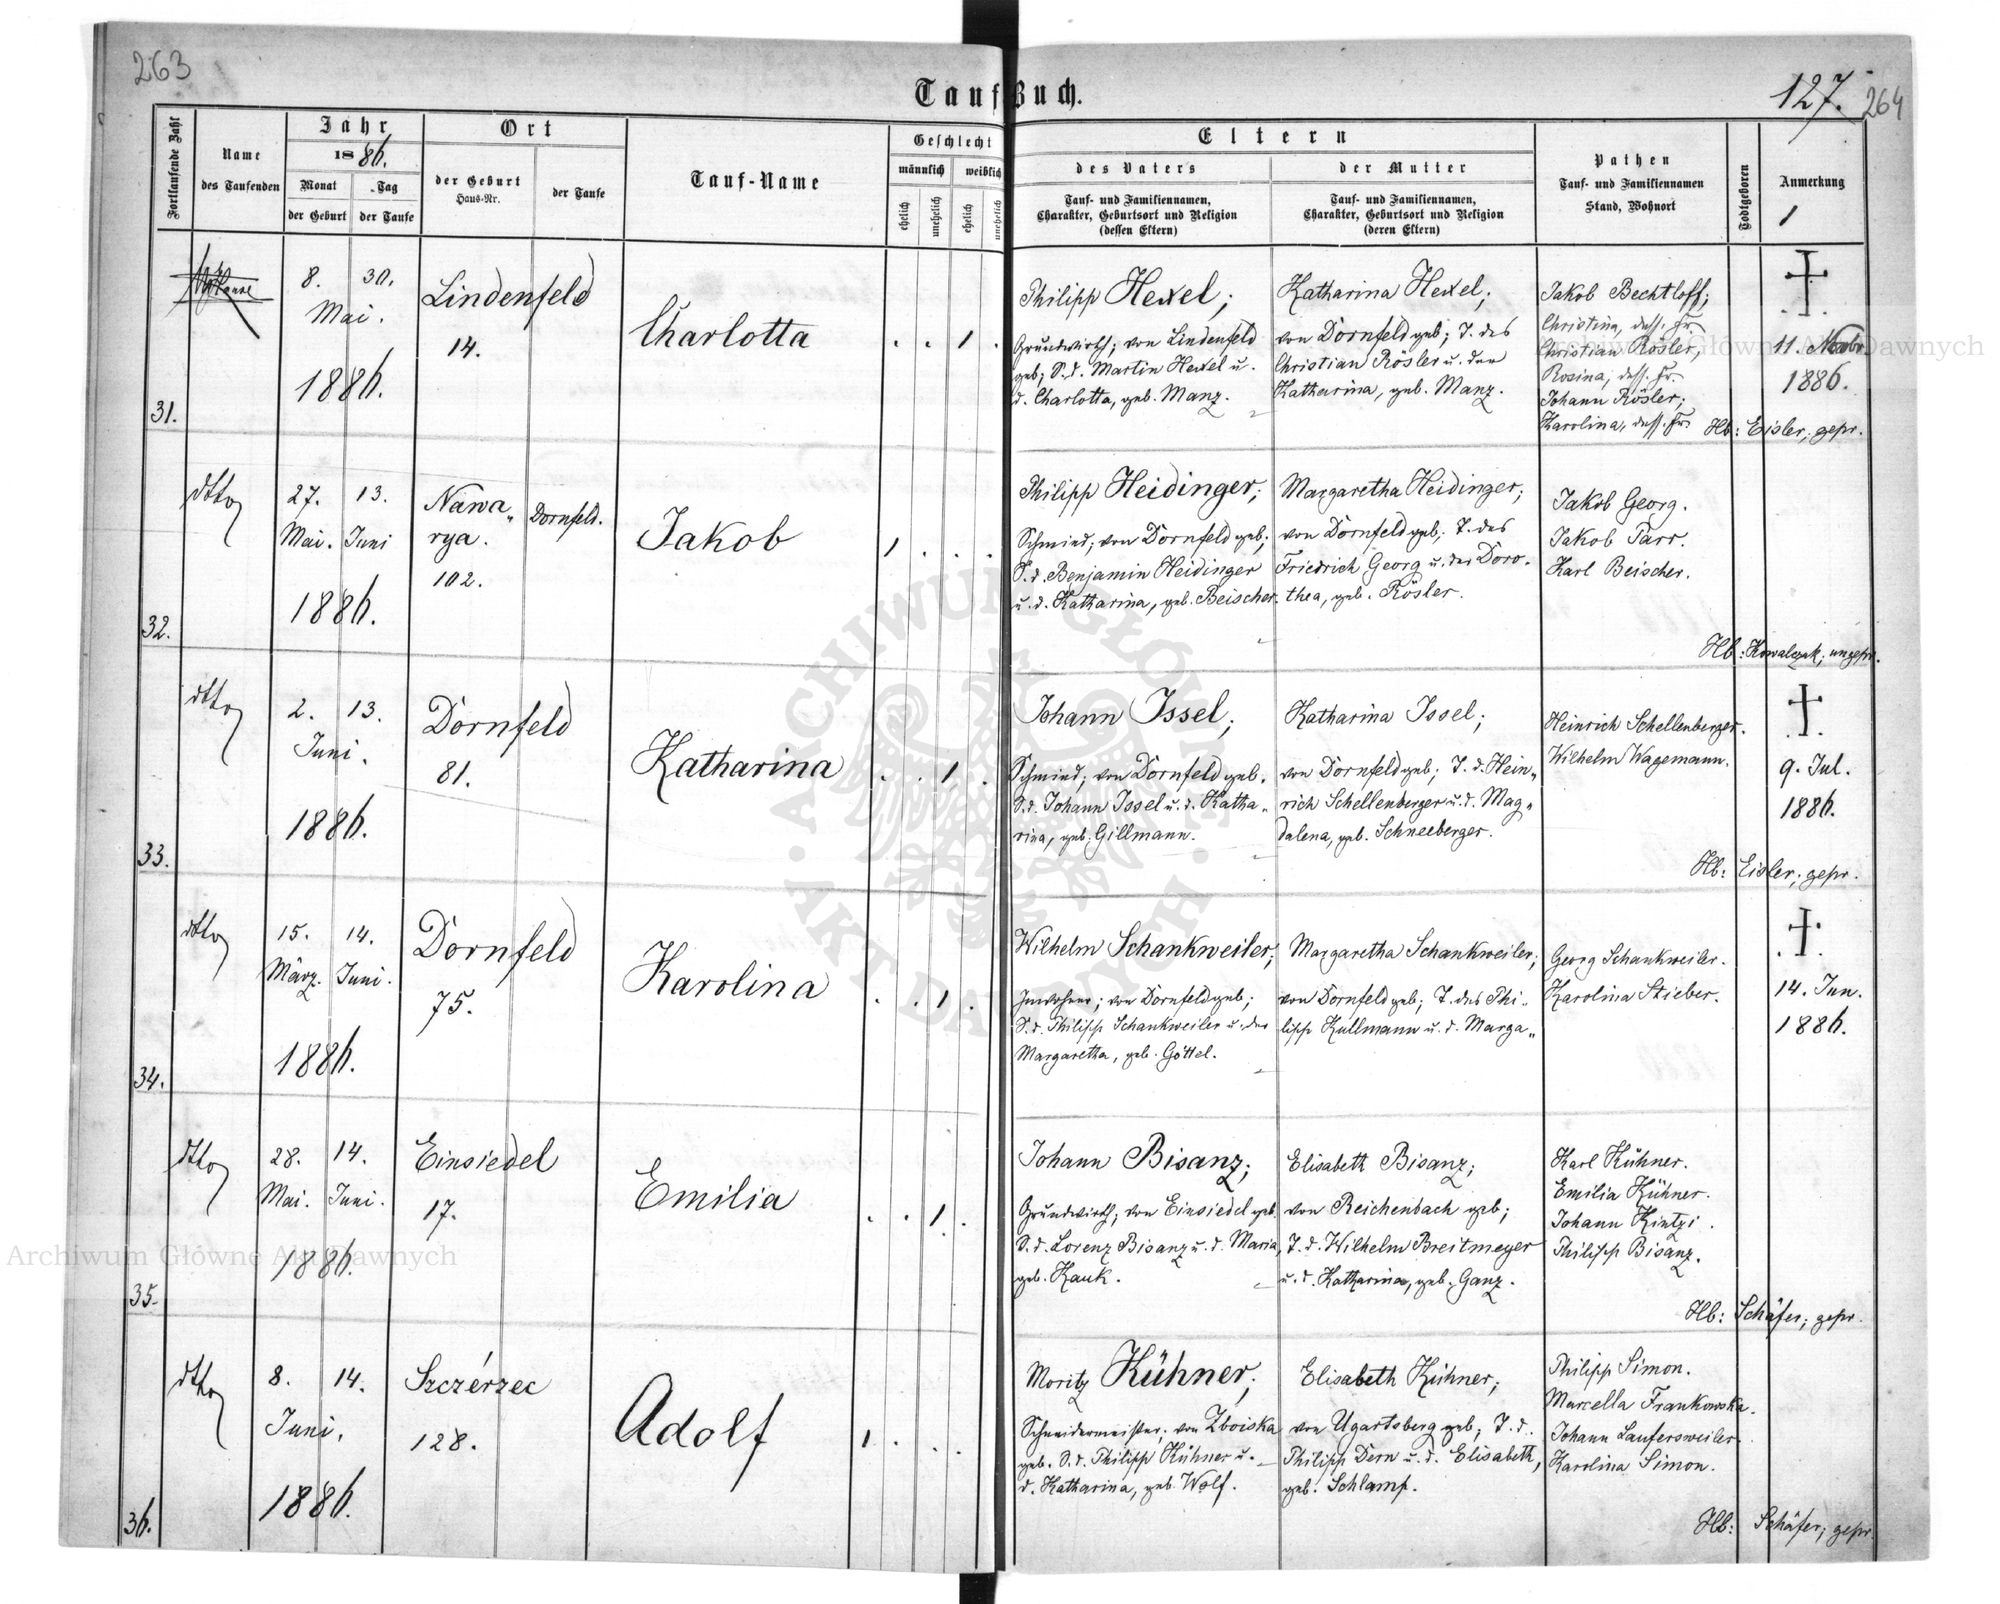 263
Taufbuch.
127.
264
Fortlaufende Zahl
Name
des Taufenden
Jahr
1886.
Monat
der Geburt
Tag
der Taufe
Ort
der Geburt
Haus-Nr.
der Taufe
Tauf-Name
Geschlecht
männlich
weiblich
ehelich
unehelich
ehelich
unehelich
Eltern
des Vaters
Tauf- und Familiennamen,
Charakter, Geburtsort und Religion
(dessen Eltern)
der Mutter
Tauf- und Familiennamen,
Charakter, Geburtsort und Religion
(deren Eltern)
Pathen
Tauf- und Familiennamen
Stand, Wohnort
Todtgeboren
Anmerkung
1
31.
8. 30.
Mai.
1886.
Lindenfeld
14.
Charlotta
. . 1 .
Philipp Hexel;
Grundwirth; von Lindenfeld
geb; S. d. Martin Hexel u.
d. Charlotta, geb. Manz.
Katharina Hexel;
von Dornfeld geb; T. des
Christian Rösler u. der
Katharina, geb. Manz.
Jakob Bechtloff;
Christina, dess. Fr.
Christian Rösler,
Rosina, dess. Fr.
Johann Rösler;
Karolina, dess. Fr.
11. Novbr.
1886.
Hb: Eisler; gepr.
32.
dtto
27. 13.
Mai. Juni
1886.
Nawa„
rya.
102.
Dornfeld.
Jakob
1 . . .
Philipp Heidinger;
Schmied; von Dornfeld geb;
S. d. Benjamin Heidinger
u. d. Katharina, geb. Beischer.
Margaretha Heidinger;
von Dornfeld geb; T. des
Friedrich Georg u. der Doro-
thea, geb. Rösler.
Jakob Georg.
Jakob Parr.
Karl Beischer.
Hb: Kowalczak; ungepr.
33.
dtto
2. 13.
Juni.
1886.
Dornfeld
81.
Katharina
. . 1 .
Johann Issel;
Schmied; von Dornfeld geb.
S. d. Johann Issel u. d. Katha„
rina, geb. Gillmann.
Katharina Issel;
von Dornfeld geb; T. d. Hein„
rich Schellenberger u. d. Mag„
dalena, geb. Schneeberger.
Heinrich Schellenberger.
Wilhelm Wagemann.
9. Jul.
1886.
Hb: Eisler; gepr.
34.
dtto
15. 14.
März. Juni.
1886.
Dornfeld
75.
Karolina
. . 1 .
Wilhelm Schankweiler;
Inwohner; von Dornfeld geb;
S. d. Philipp Schankweiler u. der
Margaretha, geb. Göttel.
Margaretha Schankweiler;
von Dornfeld geb; T. des Phi-
lipp Kullmann u. d. Marga„
Georg Schankweiler.
Karolina Stieber.
14. Jun.
1886.
35.
dtto
28. 14.
Mai. Juni.
1886.
Einsiedel
17.
Emilia
. . 1 .
Johann Bisanz;
Grundwirth; von Einsiedel geb.
S. d. Lorenz Bisanz u. d. Maria,
geb. Kauk.
Elisabeth Bisanz;
von Reichenbach geb;
T. d. Wilhelm Breitmeyer
u. d. Katharina, geb. Ganz.
Karl Kühner.
Emilia Kühner.
Johann Kintzi.
Philipp Bisanz.
Hb: Schäfer; gepr.
36.
dtto
8. 14.
Juni.
1886.
Szczérzec
128.
Adolf
1 . . .
Moritz Kühner;
Schneidermeister; von Zboiska
geb. S. d. Philipp Kühner u.
d. Katharina, geb. Wolf.
Elisabeth Kühner;
von Ugartsberg geb; T. d.
Philipp Dern u. d. Elisabeth,
geb. Schlamp.
Philipp Simon.
Marcella Frankowska.
Johann Laufersweiler.
Karolina Simon.
Hb: Schäfer; gepr.
Archiwum Główne Akt Dawnych
Archiwum Główne Akt Dawnych
ARCHIWUM GŁÓWNE · AKT DAWNYCH ·